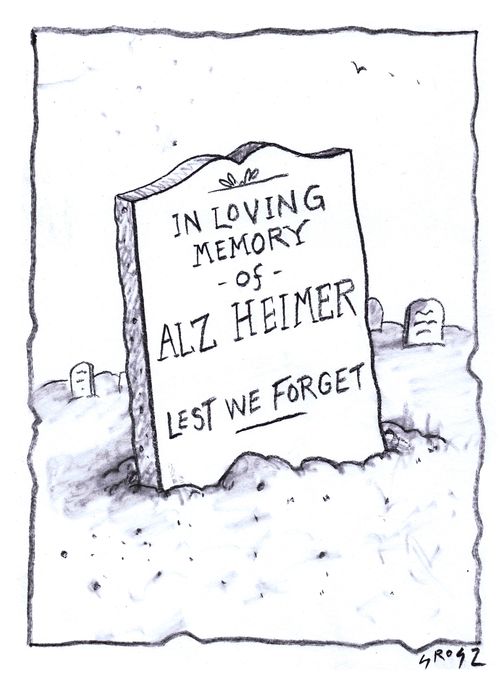 IN LOVING
MEMORY
- of -
ALZ HEIMER
LEST WE FORGET